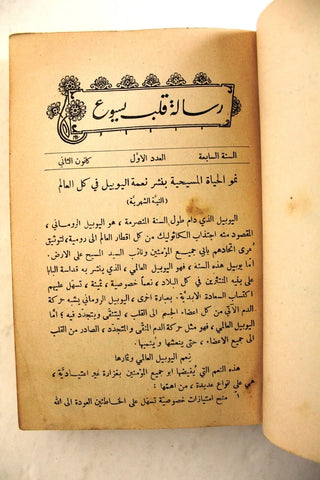 رسالة قلب يسوع
السنة السابعة العدد الاول كانون الثاني
نمو الحياة المسيحية بنشر نعمة اليوبيل في كل العالم
(النيَّة الشهريَّة)
اليوبيل الذي دام طول السنة المنصرمة ، هو اليوبيل الروماني ،
المقصود منه اجتذاب الكاثوليك من كل اقطار العالم الى رومية ، لتوثيق
عُرى اتحادهم بابي جميع المؤمنين ونائب السيد المسيح على الارض.
امَّا يوبيل هذه السنة ، فهو اليوبيل العالمي ، الذي ينشر به قداسة البابا
على بنيه المنتشرين في كل البلاد ، نعماً خصوصيَّة ، ثمينة ، تسهّل عليهم
اكتساب السعادة الابديَّة. بعبارة اخرى ، اليوبيل الروماني يشبه حركة
الدم الآتي من كل اعضاء الجسم الى القلب ، ليتنقَّى ويتجدَّد فيه ؛ امَّا
اليوبيل العالمي ، فهو مثل حركة الدم المنقَّى والمتجدّد ، الصادر من القلب
الى جميع الاعضاء ، حتى ينعشها ويُنميها.
نِعم اليوبيل العالمي وثمارها
هذه النعم التي يُفيضها ابو جميع المؤمنين بغزارة غير اعتياديَّة ،
هي على انواع عديدة ، من اهمّها :
١ منح امتيازات خصوصيَّة تسهّل على الخاطئين العودة الى الله